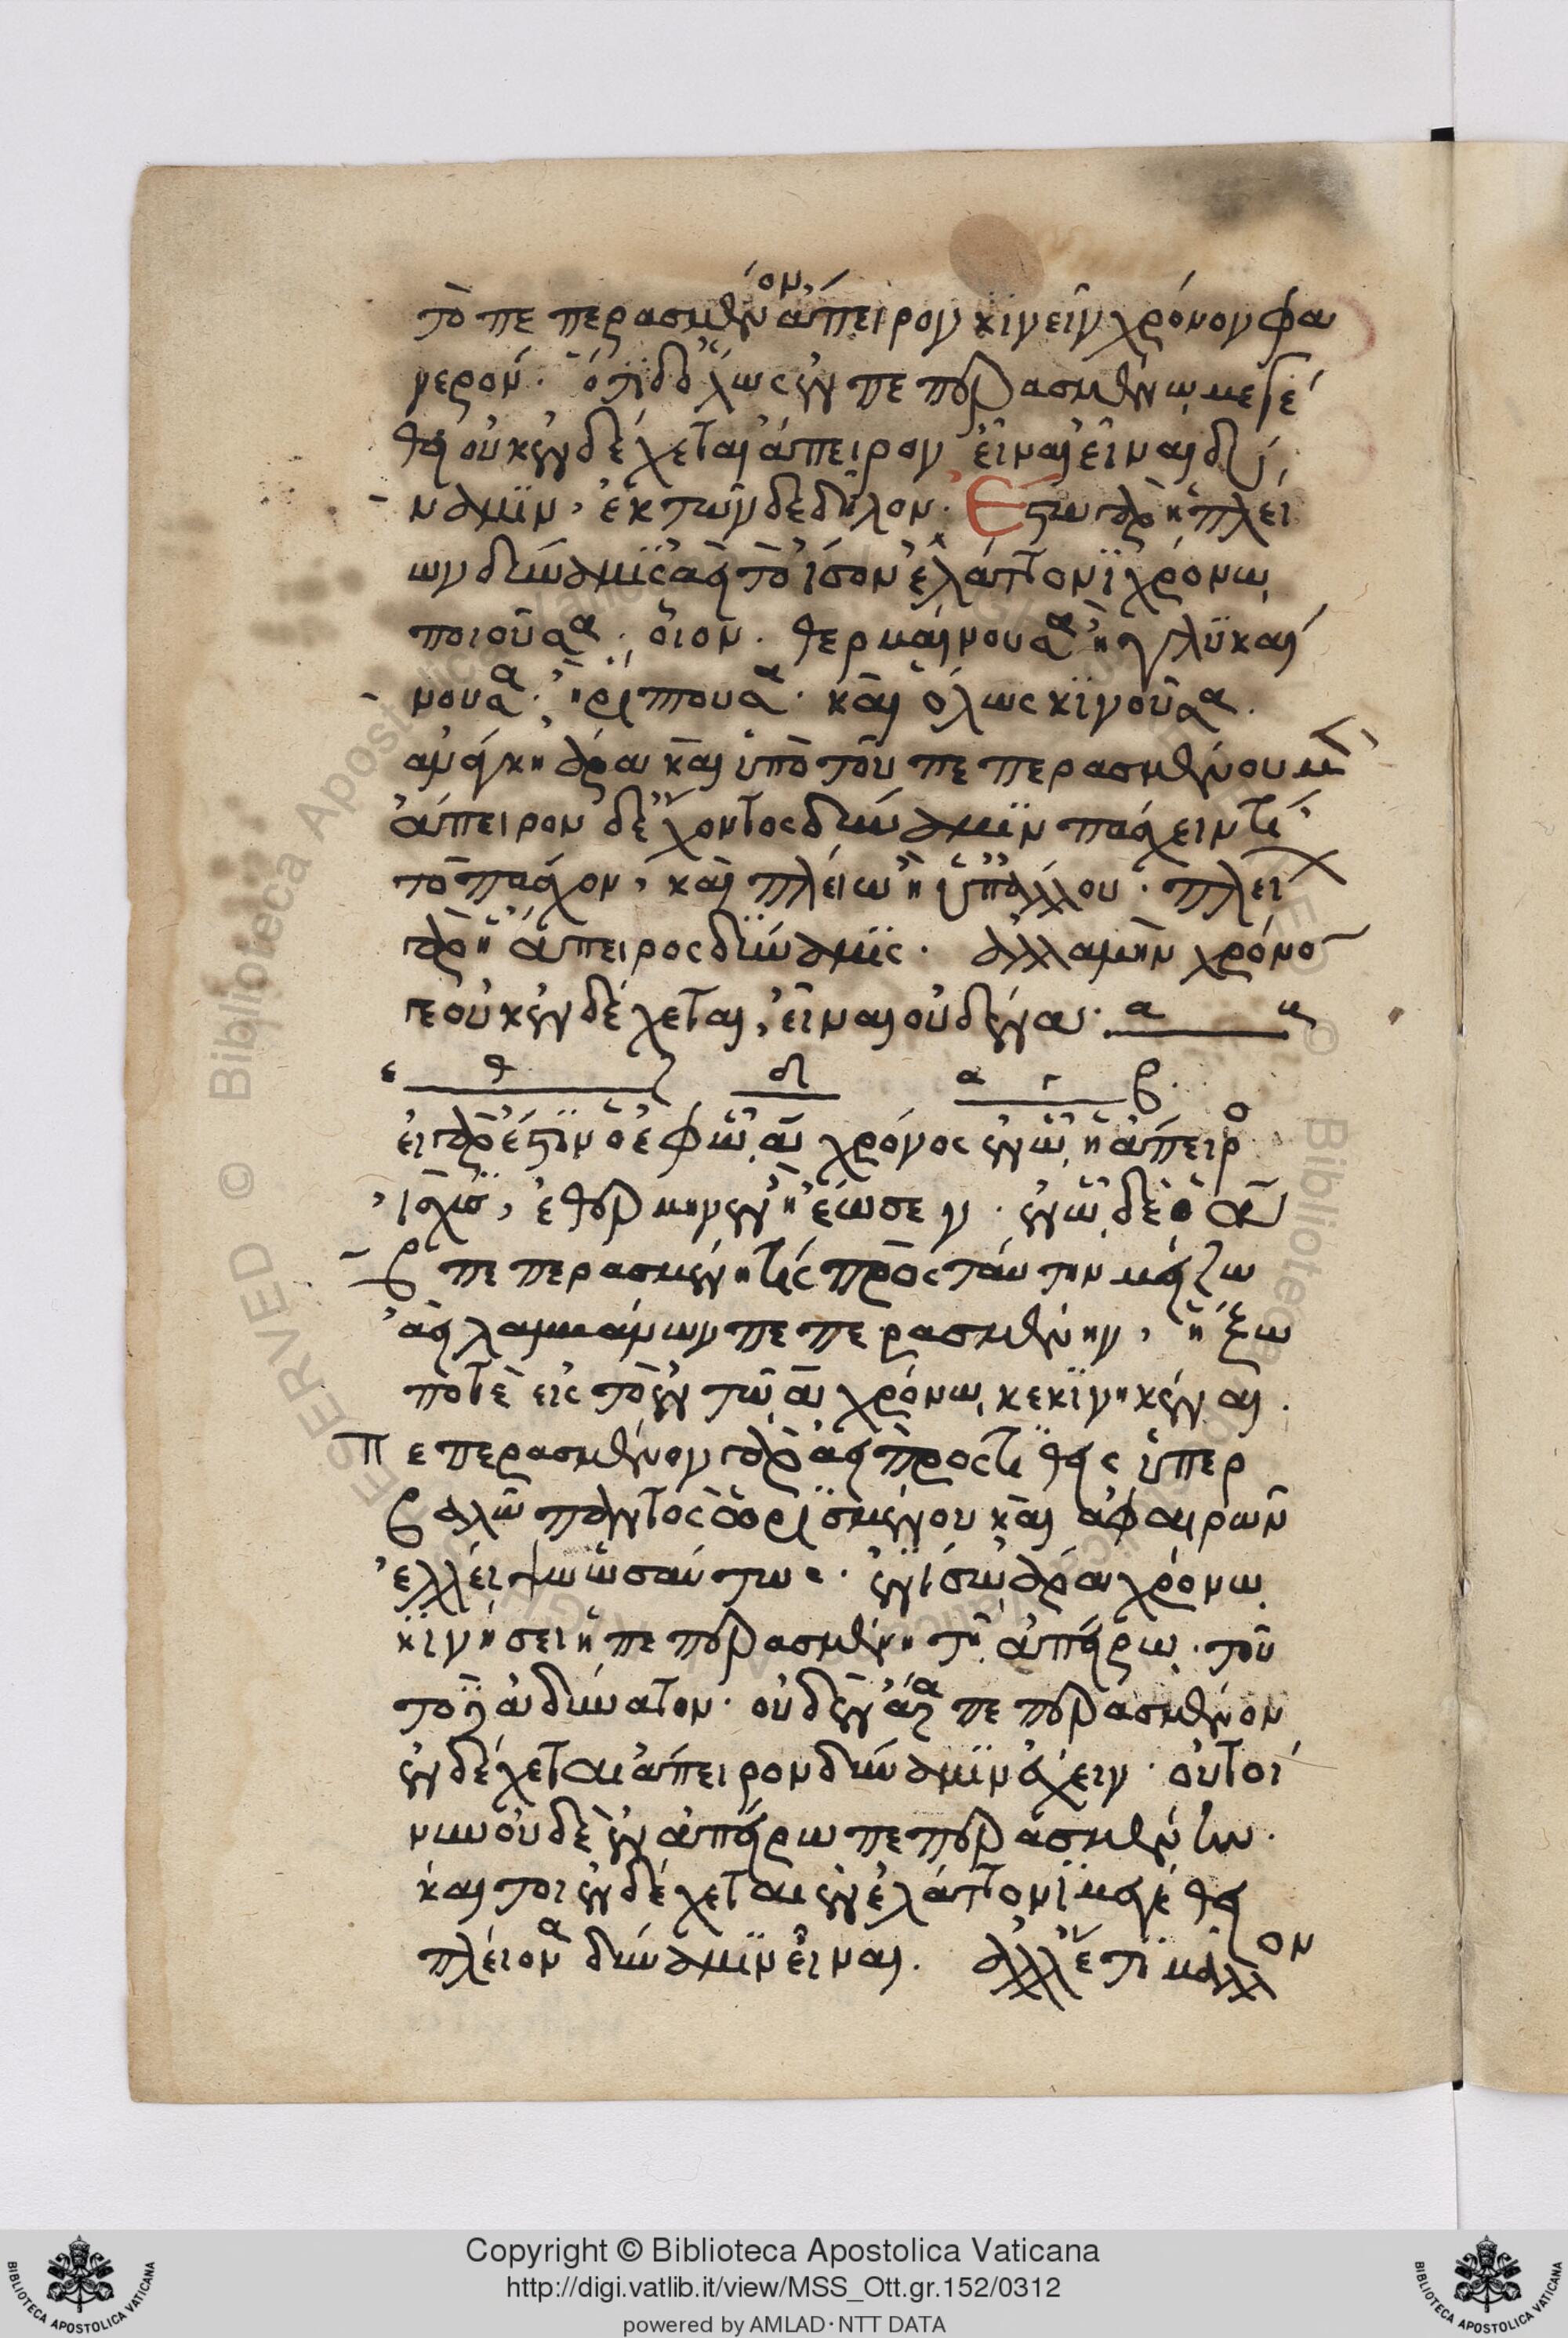 τὸ πεπερασμένον ἄπειρον κινεῖν χρόνον φα
νερόν· ὅτι δ' ὅλως ἐν πεπερασμένω μεγέ
θει οὐκ ἐνδέχεται ἄπειρον εἶναι εἶναι δύ
ναμιν, ἐκ τῶνδε δῆλον· Ἔστω γὰρ ἡ πλεί
ων δύναμις ἀεὶ τὸ ἴσον ἐλάττονι χρόνω
ποιοῦσα· οἷον· θερμαίνουσα ἢ γλυκαί
νουσα· ἢ ῥίπτουσα· καὶ ὅλως κινοῦσα.
ἀνάγκη ἄρα καὶ ὑπὸ τοῦ πεπερασμένου μὲν
ἄπειρον δ' ἔχοντος δύναμιν πάσχειν τι
τὸ πάσχον, καὶ πλείω ἢ ὑπ' ἄλλου· πλεί
γὰρ ἡ ἄπειρος δύναμις· ἀλλὰ μὴν χρόνον
γε οὐκ ἐνδέχεται, εἶναι οὐδένα· α α
ε θ ζ δ α γ β
εἰ γάρ ἐστιν ὁ ἐφ' ὧ α χρόνος ἐν ὧ ἡ ἄπειρος
ἰσχὺς, ἐθέρμηνεν ἢ ἔωσεν· ἐν ὧ δὲ ὁ α
β πεπερασμένη τις πρὸς ταύτην μείζω
ἀεὶ λαμβάνων πεπερασμένην, ἥξω
ποτὲ εἰς τὸ ἐν τῶ α χρόνω κεκινηκέναι.
πεπερασμένον γὰρ ἀεὶ προστιθεὶς ὑπερ
βαλῶ παντὸς ὁρισμένου καὶ ἀφαιρῶν
ἐλλείψω ὡσαύτως· ἐν ἴσω ἄρα χρόνω
κινήσει ἡ πεπερασμένη τῆ ἀπείρω· τοῦ
το δὲ ἀδύνατον· οὐδὲν ἄρα πεπερασμένον
ἐνδέχεται ἄπειρον δύναμιν ἔχειν· οὐ τοί
νυν οὐδὲ ἐν ἀπείρω πεπερασμένην·
καίτοι ἐνδέχεται ἐν ἐλάττονι μεγέθει
πλείονα δύναμιν εἶναι. ἀλλ' ἔτι μᾶλλον
Copyright © Biblioteca Apostolica Vaticana
http://digi.vatlib.it/view/MSS_Ott.gr.152/0312
powered by AMLAD·NTT DATA